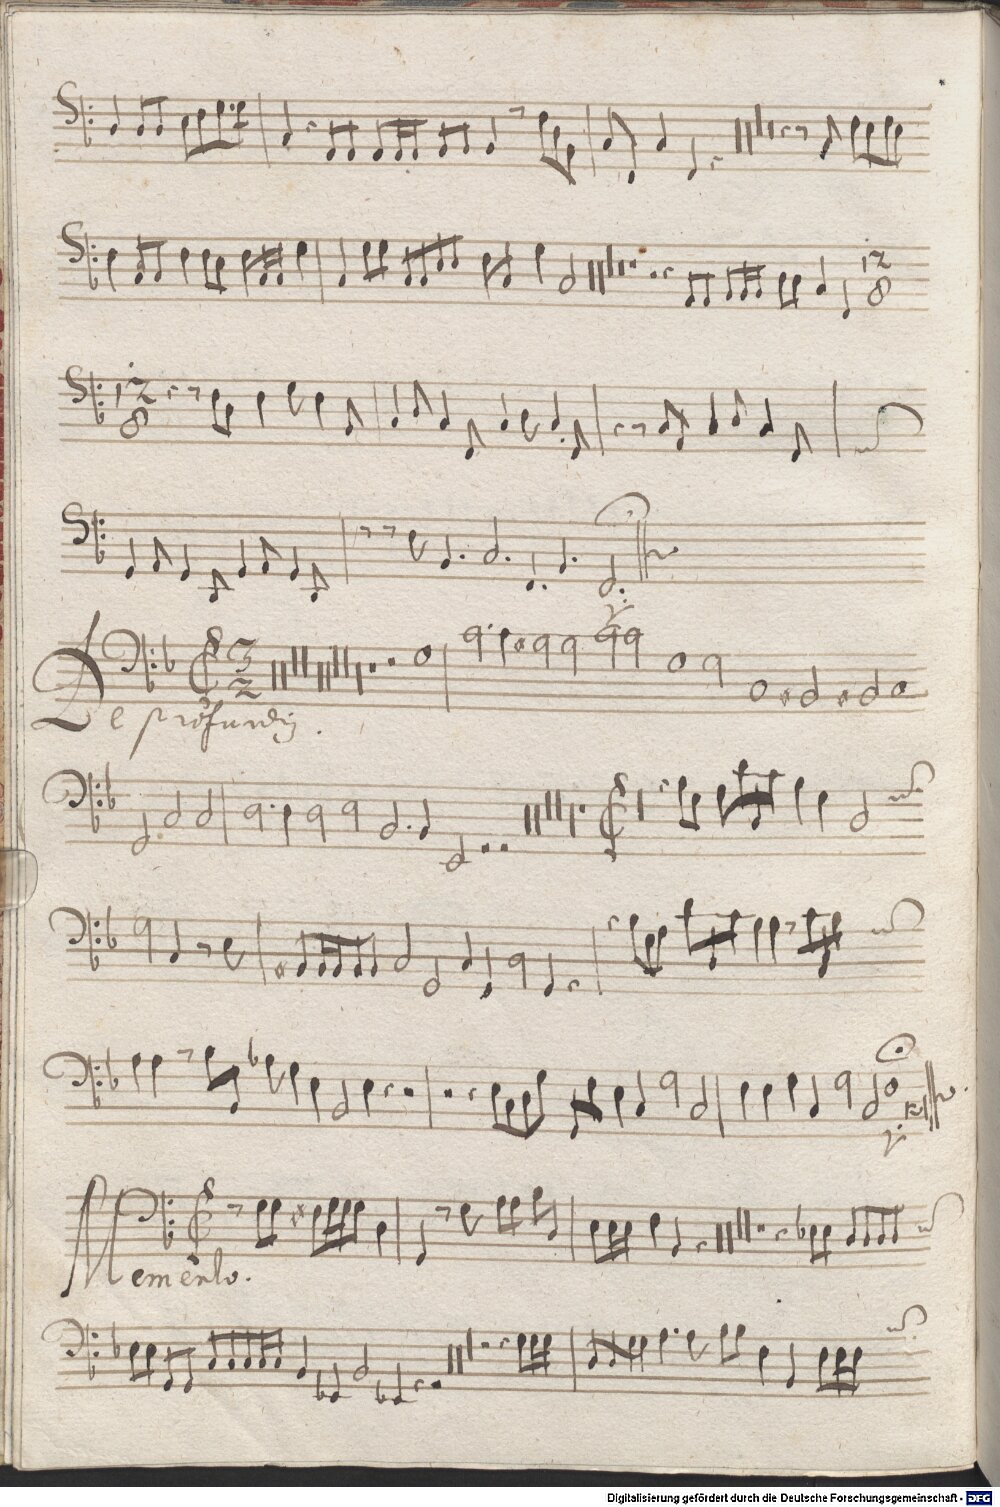 12
8
12
8
3
2
De profundis.
Memento.
Digitalisierung gefördert durch die Deutsche Forschungsgemeinschaft - DFG